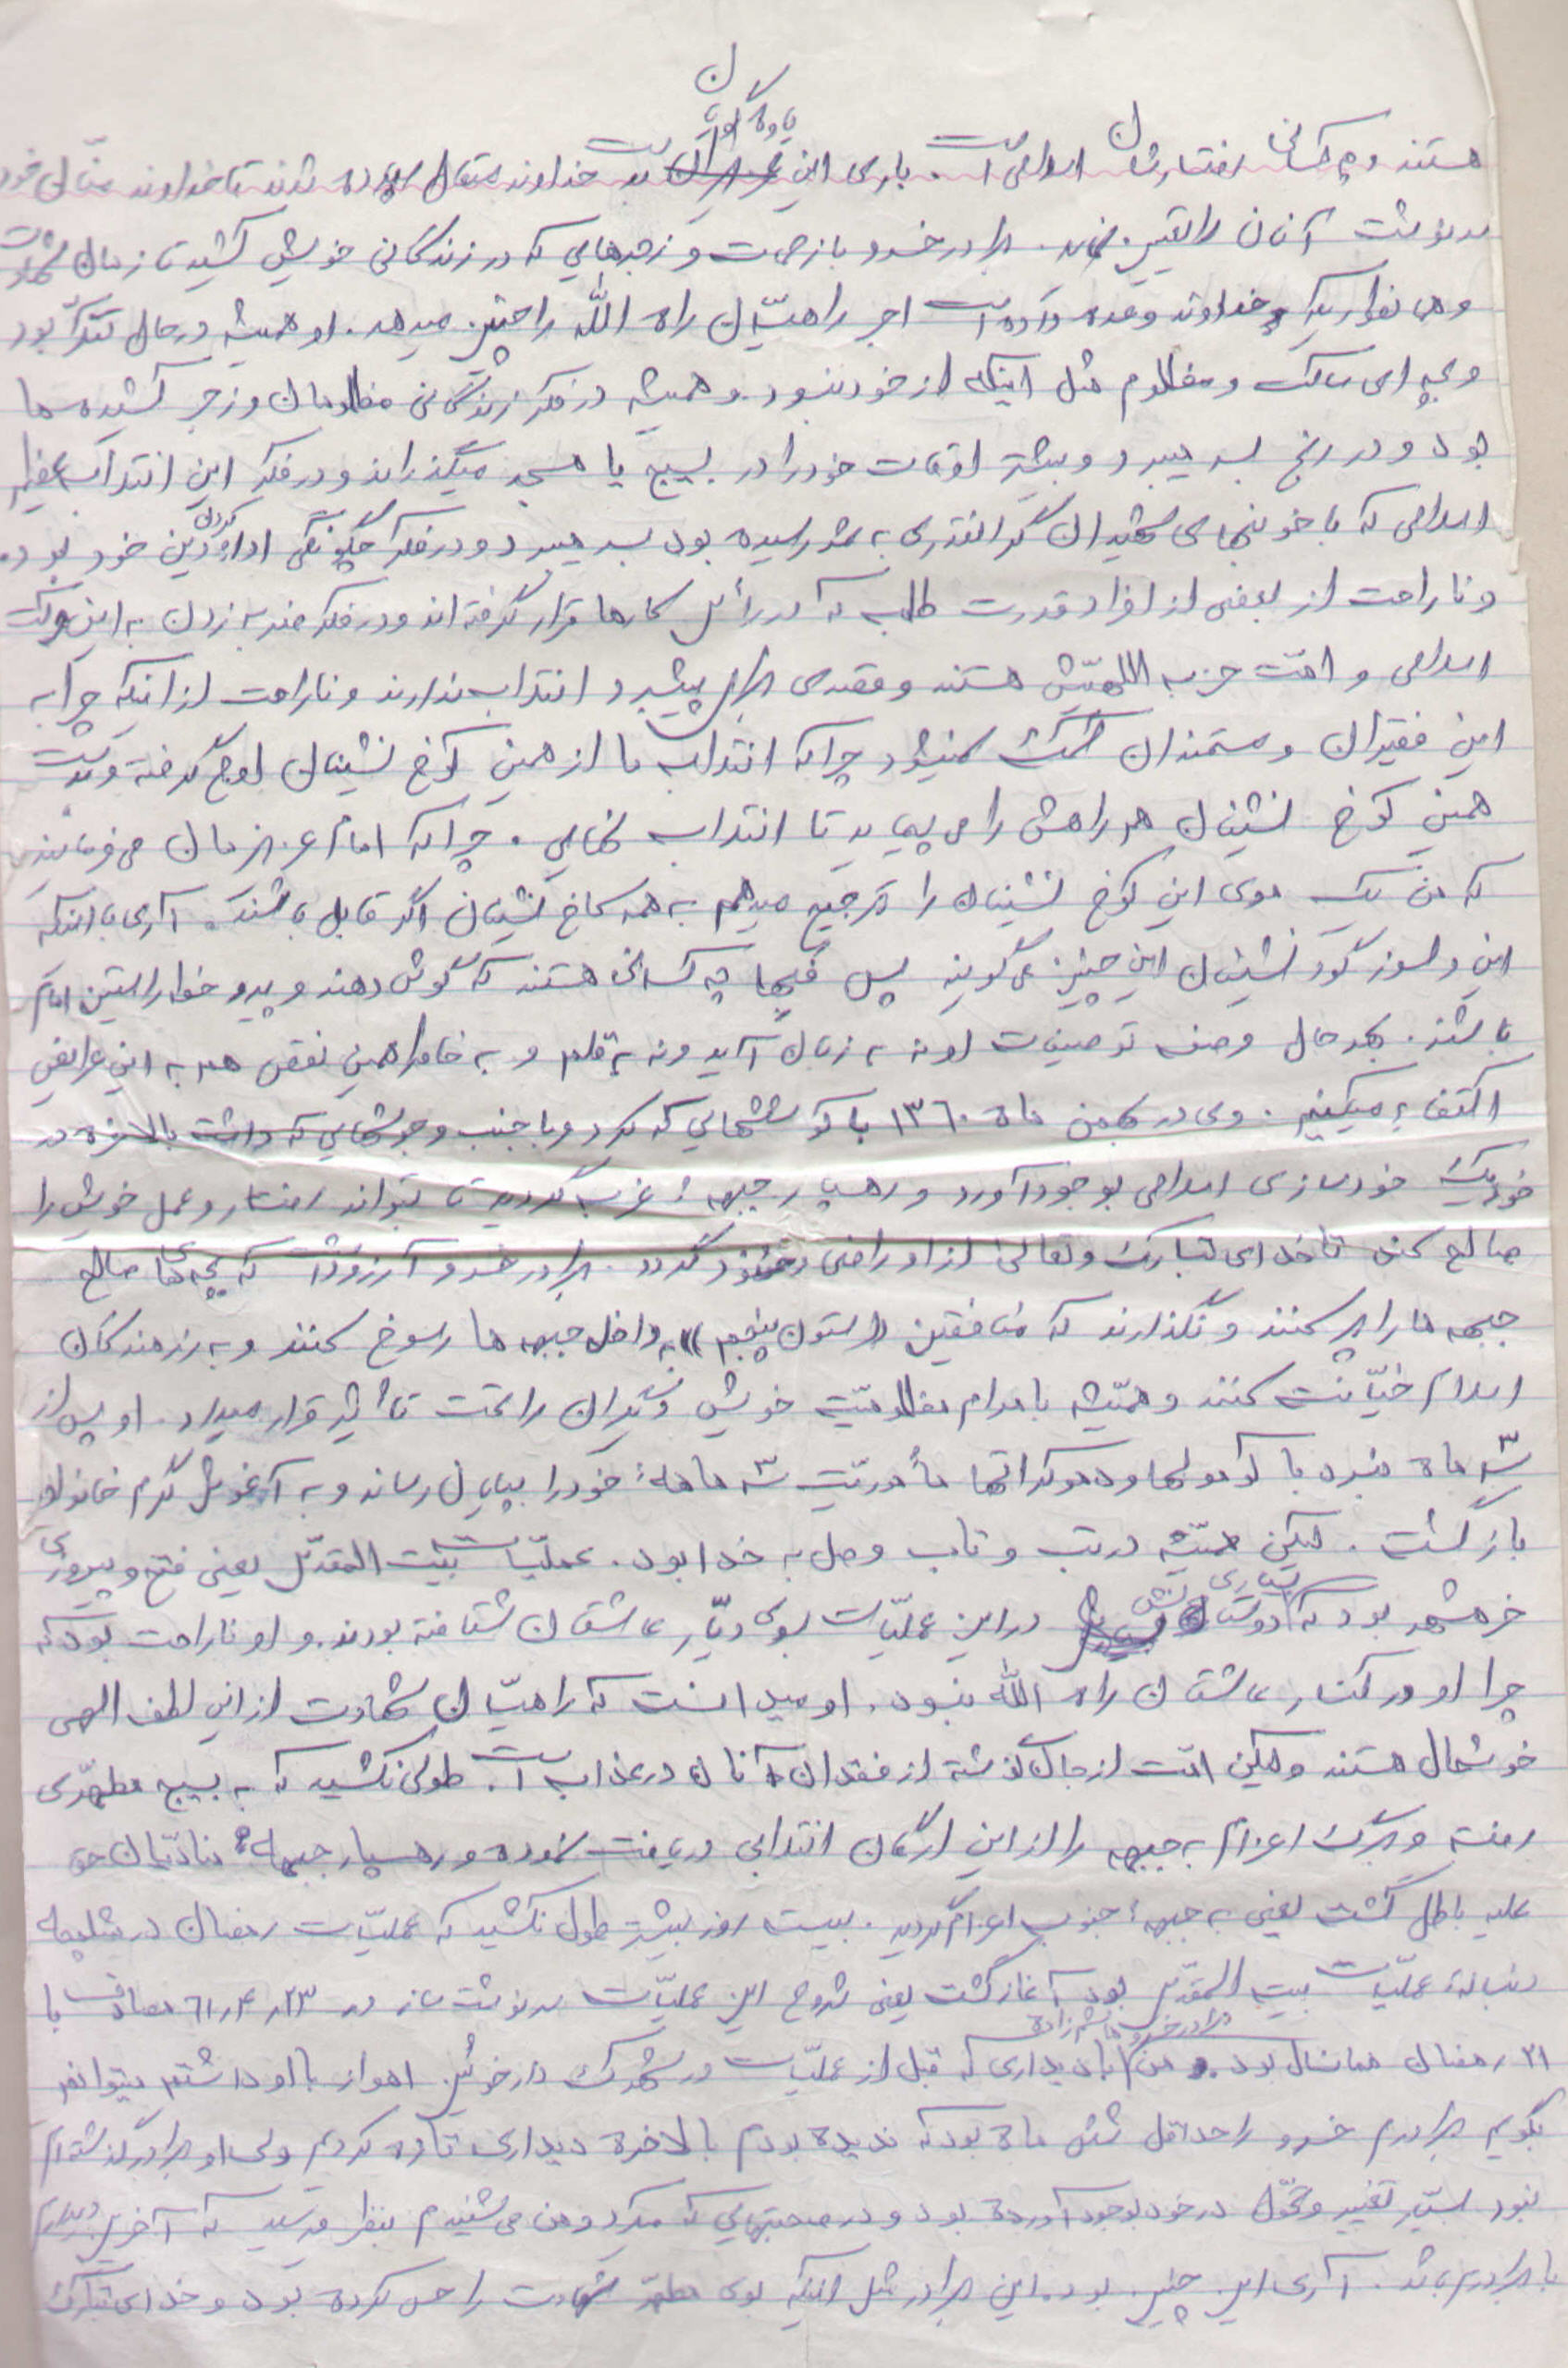 هستند و چه کسانی رفتارشان اسلامی است. باری این یاوران به خداوند متعال سپرده شدند تا خداوند متعالی خود
سرنوشت آنان را تعیین نماید. برادر خسرو با زحمت و زجرهایی که در زندگانی خویش کشید تا زمان شهادت
و همانطوریکه خداوند وعده داده است اجر راهیان راه الله را چنین میدهد. او همیشه در حال تفکر بود
و بچه ای ساکت و مظلوم مثل اینکه از خود نبود. و همیشه در فکر زندگانی مظلومان و زجر کشیده ها
بود و در رنج بسر میبرد و بیشتر اوقات خود را در بسیج یا مسجد میگذراند و در فکر این انقلاب عظیم
اسلامی که با خونبهای شهیدان گرانقدری به ثمر رسیده بود بسر میبرد و در فکر چگونگی ادا کردن دین خود بود.
و ناراحت از بعضی از افراد قدرت طلب که در رأس کارها قرار گرفته اند و در فکر ضربه زدن به این حرکت
اسلامی و امت حزب اللهیش هستند و قصدی برای پیشبرد انقلاب ندارند و ناراحت از اینکه چرا به
این فقیران و مستمندان کمک نمیشود چرا که انقلاب ما از همین کوخ نشینان اوج گرفته و بدست
همین کوخ نشینان هم راهش را می پیماید تا انقلاب نهایی. چرا که امام عزیزمان می فرمایند
که من یک موی این کوخ نشینان را ترجیح میدهم به همه کاخ نشینان اگر قابل باشند. آری با اینکه
این دلسوز گود نشینان این چنین می گویند پس چه کسانی هستند که گوش دهند و پیرو خط راستین امام
باشند. بهر حال وصف توصیفات او نه به زبان آید و نه به قلم و به خاطر همین نقص هم به این عرایض
اکتفاء میکنیم. وی در بهمن ماه ۱۳۶۰ با کوششهایی که کرد و با جنب و جوشهایی که داشت بالاخره در
خود یک خودسازی اسلامی بوجود آورد و رهسپار جبههٔ غرب گردید تا بتواند رفتار و عمل خویش را
صالح کند تا خدای تبارک و تعالی از او راضی و خشنود گردد. برادر خسرو آرزو داشت که بچه های صالح
جبهه ها را پر کنند و نگذارند که منافقین «ستون پنجم» به داخل جبهه ها رسوخ کنند و به رزمندگان
اسلام خیانت کنند و همیشه با مرام مظلومیت خویش دیگران را تحت تأثیر قرار میداد. او پس از
سه ماه نبرد با کومولها و دموکراتها مأموریت سه ماههٔ خود را بپایان رساند و به آغوش گرم خانواده
بازگشت. لیکن همیشه در تب و تاب وصل به خدا بود. عملیات بیت المقدس یعنی فتح و پیروزی
خرمشهر بود که دوستان بسیاری در این عملیات بسوی دیار عاشقان شتافته بودند. و او ناراحت بود که
چرا او در کنار عاشقان راه الله نبود. او میدانست که راهیان شهادت از این لطف الهی
خوشحال هستند و لیکن امت از جان گذشته از فقدان آنان در عذاب است. طولی نکشید که به بسیج مطهری
رفته و برگ اعزام به جبهه را از این ارگان انقلابی دریافت نموده و رهسپار جبههٔ منادیان حق
علیه باطل گشت یعنی به جبههٔ جنوب اعزام گردید. بیست روز بیشتر طول نکشید که عملیات رمضان در شلمچه
دنبالهٔ عملیات بیت المقدس بود آغاز گشت یعنی شروع این عملیات سرنوشت ساز در ۲۳ر۴ر۶۱ مصادف با
۲۱ رمضان همانسال بود. من با دیداری که قبل از عملیات در شهرک دارخوئین اهواز با او داشتم میتوانم
بگویم برادرم خسرو را حداقل شش ماه بود که ندیده بودم بالاخره دیداری تازه کردیم ولی او برادر گذشته ام
نبود بسیار تغییر و تحول در خود بوجود آورده بود و در صحبتهایی که میکرد و من می شنیدم بنظر میرسید که آخرین دیدارم
با برادرم باشد. آری این چنین بود. این برادر مثل اینکه بوی مطهر شهادت را حس کرده بود و خدای تبارک